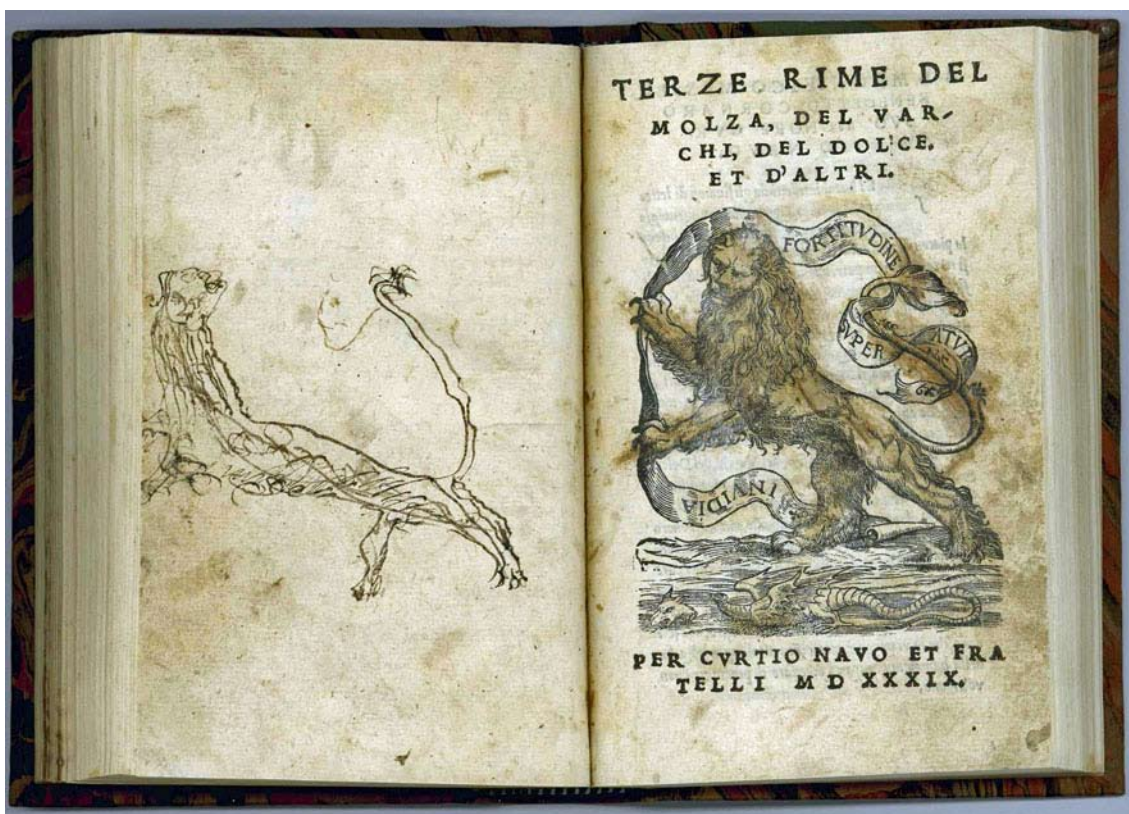 TERZE RIME DEL
MOLZA, DEL VAR-
CHI, DEL DOLCE.
ET D'ALTRI.
FORTITVDINE
SVPER
ATVR
INVIDIA
PER CVRTIO NAVO ET FRA
TELLI M D XXXIX.